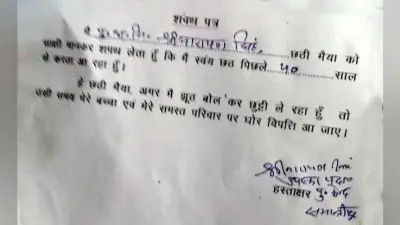 शपथ पत्र
मैं पु.अ.नि. श्रीनारायण सिंह, छठी मैया को
साक्षी मानकर शपथ लेता हूँ कि मैं स्वयं छठ पिछले 10 साल
से करता आ रहा हूँ।
हे छठी मैया, अगर मैं झूठ बोल कर छुट्टी ले रहा हूँ तो
उसी समय मेरे बच्चा एवं मेरे समस्त परिवार पर घोर विपत्ति आ जाए।
श्रीनारायण सिंह
हस्ताक्षर पु० केन्द्र